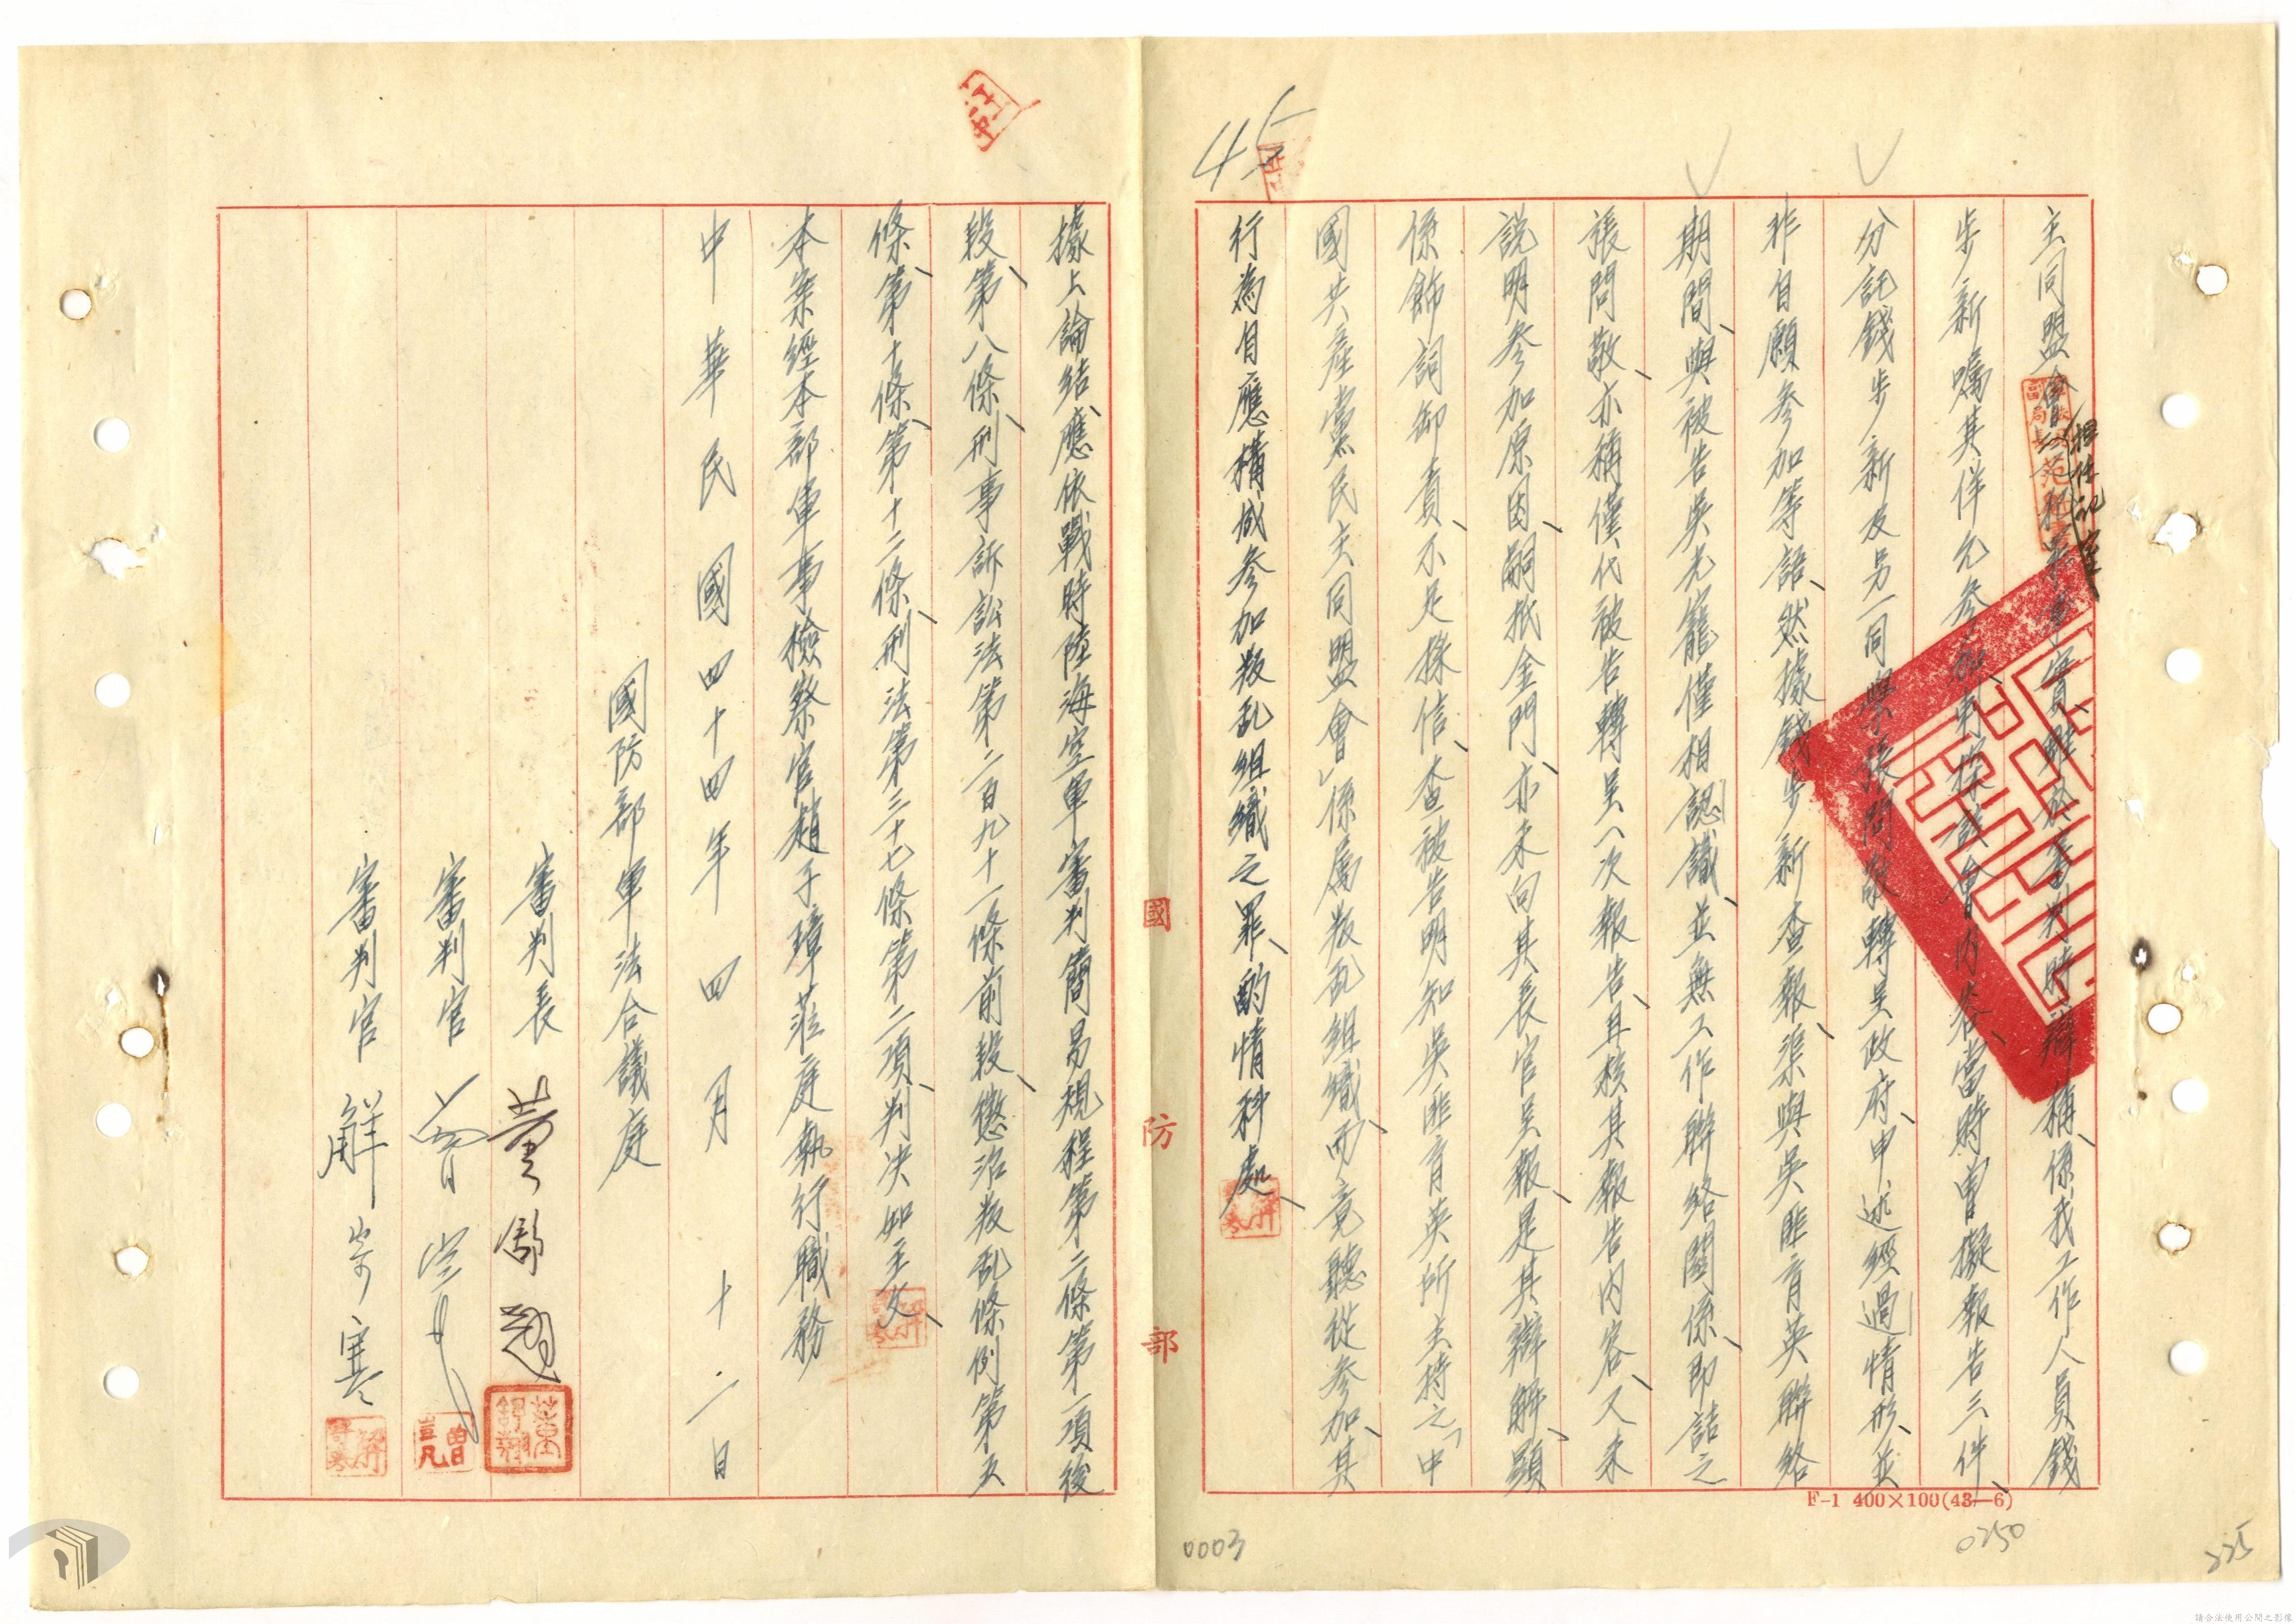 主同盟會擔任記室事實雖於審判時辯稱、係我工作人員錢
步新囑其佯允參加、刺探該會內容、當時曾擬報告三件、
分託錢步新及另一同學張問敬轉呈政府、申述經過情形、並
非自願參加等語、然據錢步新查報、渠與吳匪育英聯絡
期間、與被告吳尤寵僅相認識、並無工作聯絡關係、即詰之
張問敬、亦稱僅代被告轉呈一次報告、且核其報告內容、又未
說明參加原因、嗣抵金門、亦未向其長官呈報、是其辯解、顯
係飾詞卸責、不足採信、查被告明知吳匪育英所主持之「中
國共產黨民主同盟會」係屬叛乱組織、而竟聽從參加、其
行為自應構成參加叛乱組織之罪、酌情科處、
據上論結、應依戰時陸海空軍審判簡易規程第二條第一項後
段、第八條、刑事訴訟法第二百九十一條前段、懲治叛乱條例第五
條、第十條、第十二條、刑法第三十七條第二項、判決如主文、
本案經本部軍事檢察官趙子璋蒞庭執行職務
中華民國四十四年四月十二日
國防部軍法合議庭
審判長 葉舒翔
審判官 曾豈凡
審判官 解寄寒
國防部
45
F-1 400×100(43—6)
0003
0250
225
請合法使用公開之影像